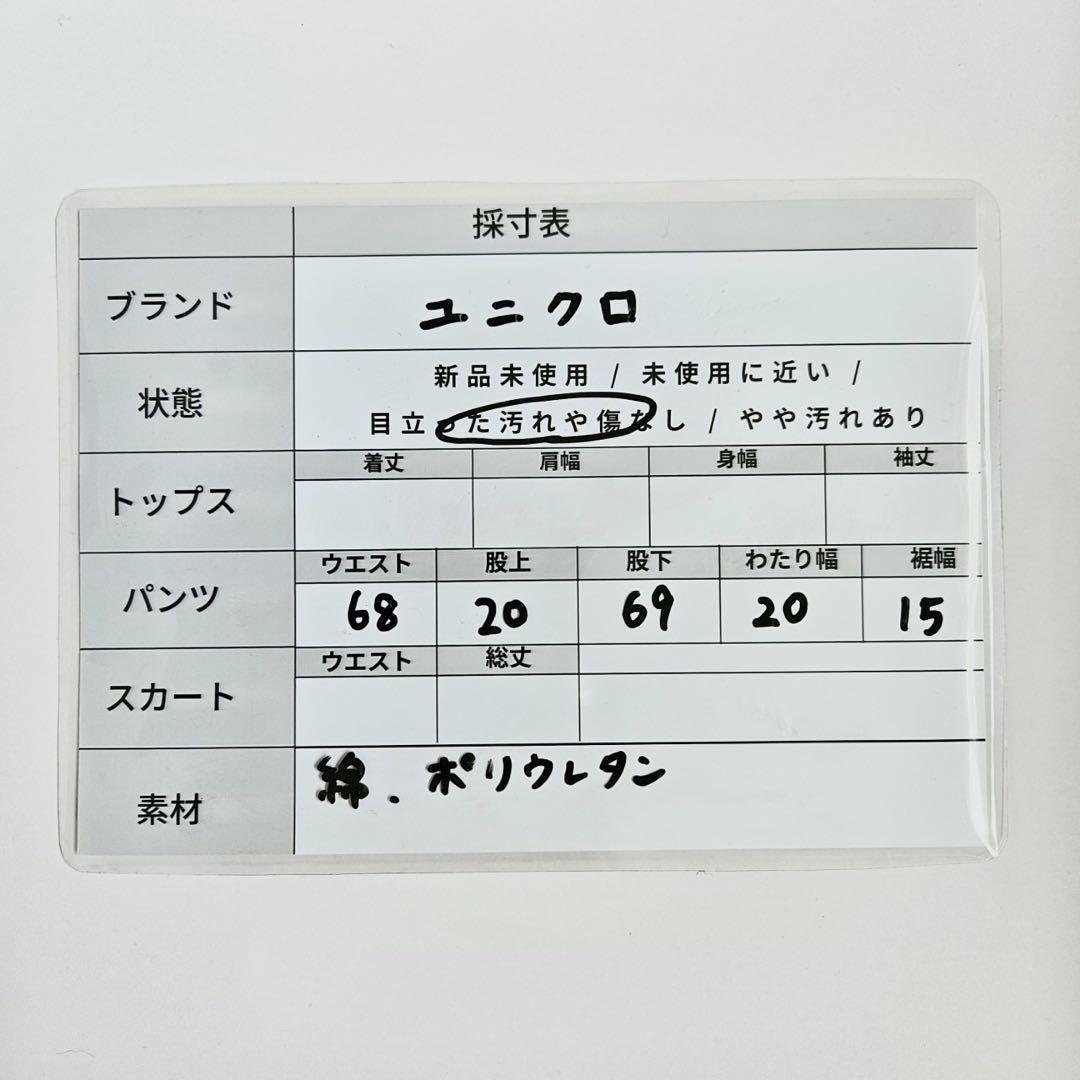 採寸表
ブランド ユニクロ
状態 新品未使用 / 未使用に近い /
目立った汚れや傷なし / やや汚れあり
着丈 肩幅 身幅 袖丈
トップス
ウエスト 股上 股下 わたり幅 裾幅
パンツ 68 20 69 20 15
ウエスト 総丈
スカート
素材 綿.ポリウレタン